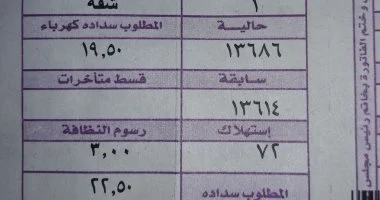 شقة ١
المطلوب سداده كهرباء حالية
١٩,٥٠ ١٣٦٨٦
قسط متأخرات سابقة
١٣٦١٤
رسوم النظافة إستهلاك
٣,٠٠ ٧٢
٢٢,٥٠ المطلوب سداده
وختم الفاتورة بخاتم رئيس مجلس